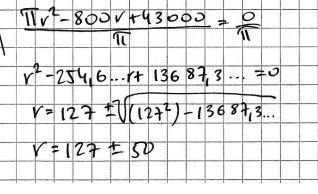 πr²-800r+43000/π = 0/π
r²-254,6...r+ 13687,3... =0
r=127 ±√(127²)-13687,3...
r=127 ± 50